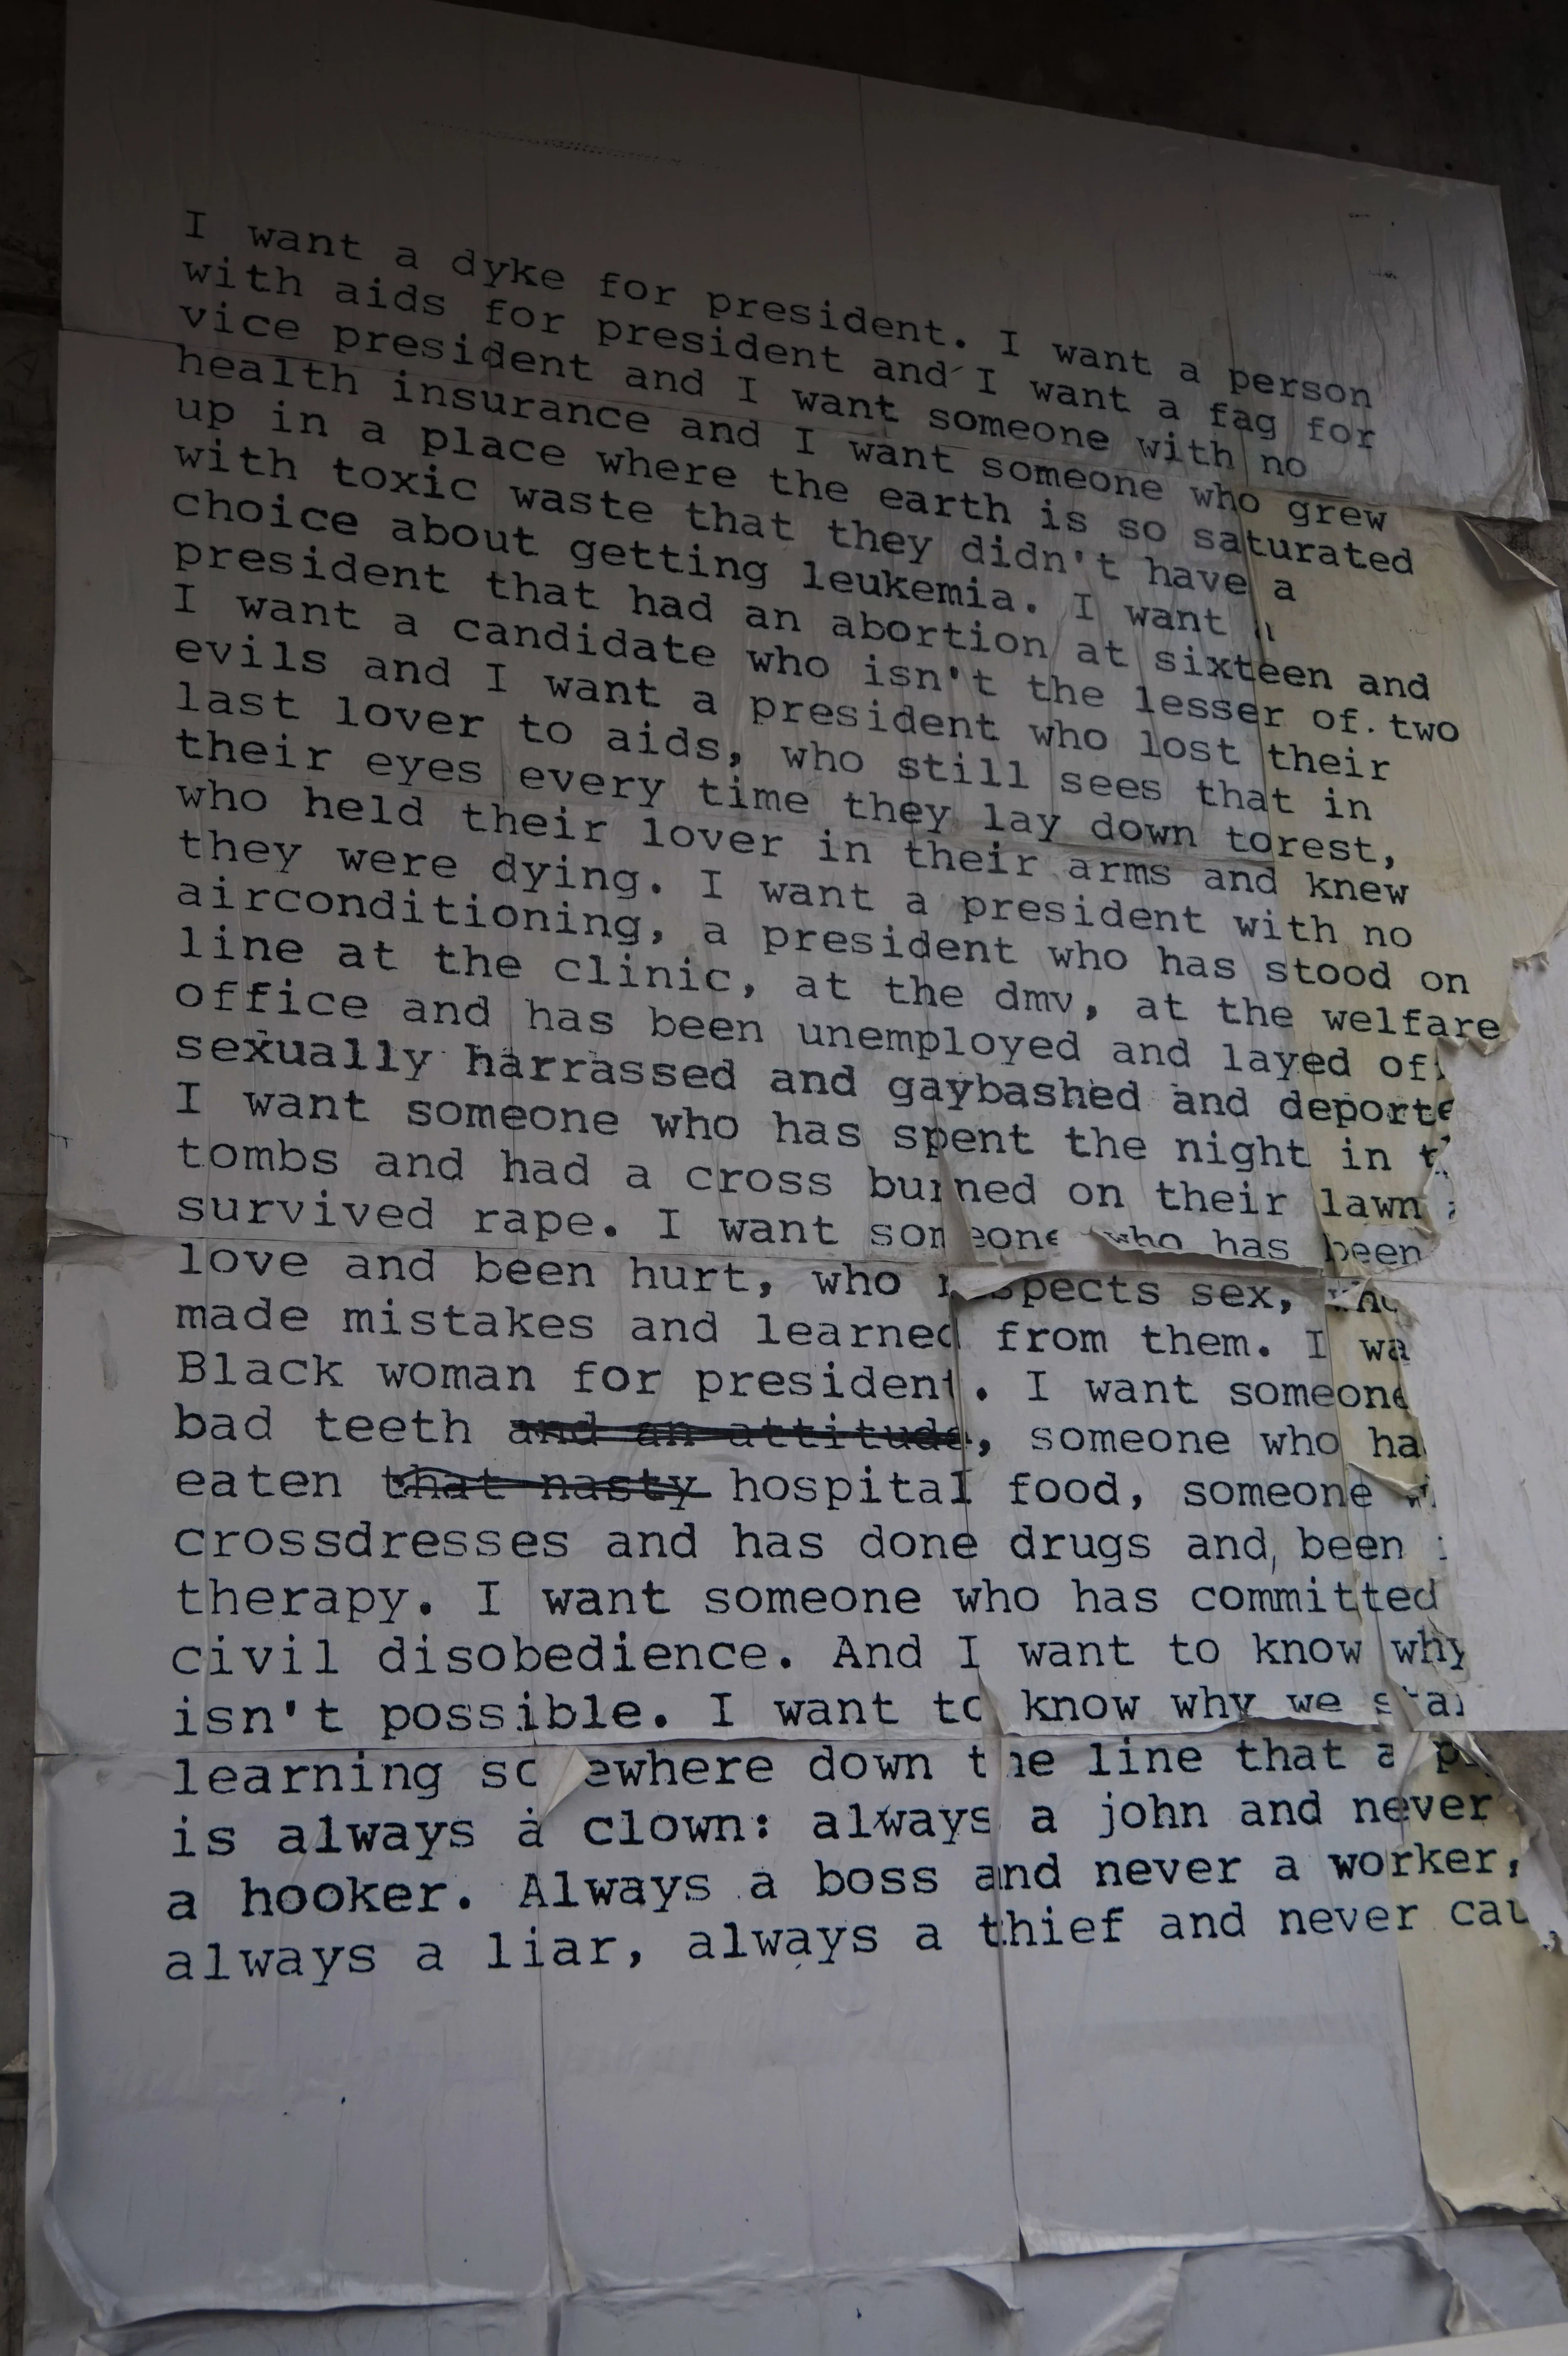 I want a dyke for president. I want a person
with aids for president and I want a fag for
vice president and I want someone with no
health insurance and I want someone who grew
up in a place where the earth is so saturated
with toxic waste that they didn't have a
choice about getting leukemia. I want
president that had an abortion at sixteen and
I want a candidate who isn't the lesser of two
evils and I want a president who lost their
last lover to aids, who still sees that in
their eyes every time they lay down torest,
who held their lover in their arms and knew
they were dying. I want a president with no
airconditioning, a president who has stood on
line at the clinic, at the dmv, at the welfare
office and has been unemployed and layed of
sexually harrassed and gaybashed and deporte
I want someone who has spent the night in t
tombs and had a cross burned on their lawn
survived rape. I want someone who has been
love and been hurt, who respects sex, who
made mistakes and learned from them. I wa
Black woman for president. I want someone
bad teeth and an attitude, someone who ha
eaten that nasty hospital food, someone
crossdresses and has done drugs and been
therapy. I want someone who has committed
civil disobedience. And I want to know why
isn't possible. I want to know why we sta
learning somewhere down the line that a
is always a clown: always a john and never
a hooker. Always a boss and never a worker,
always a liar, always a thief and never cau